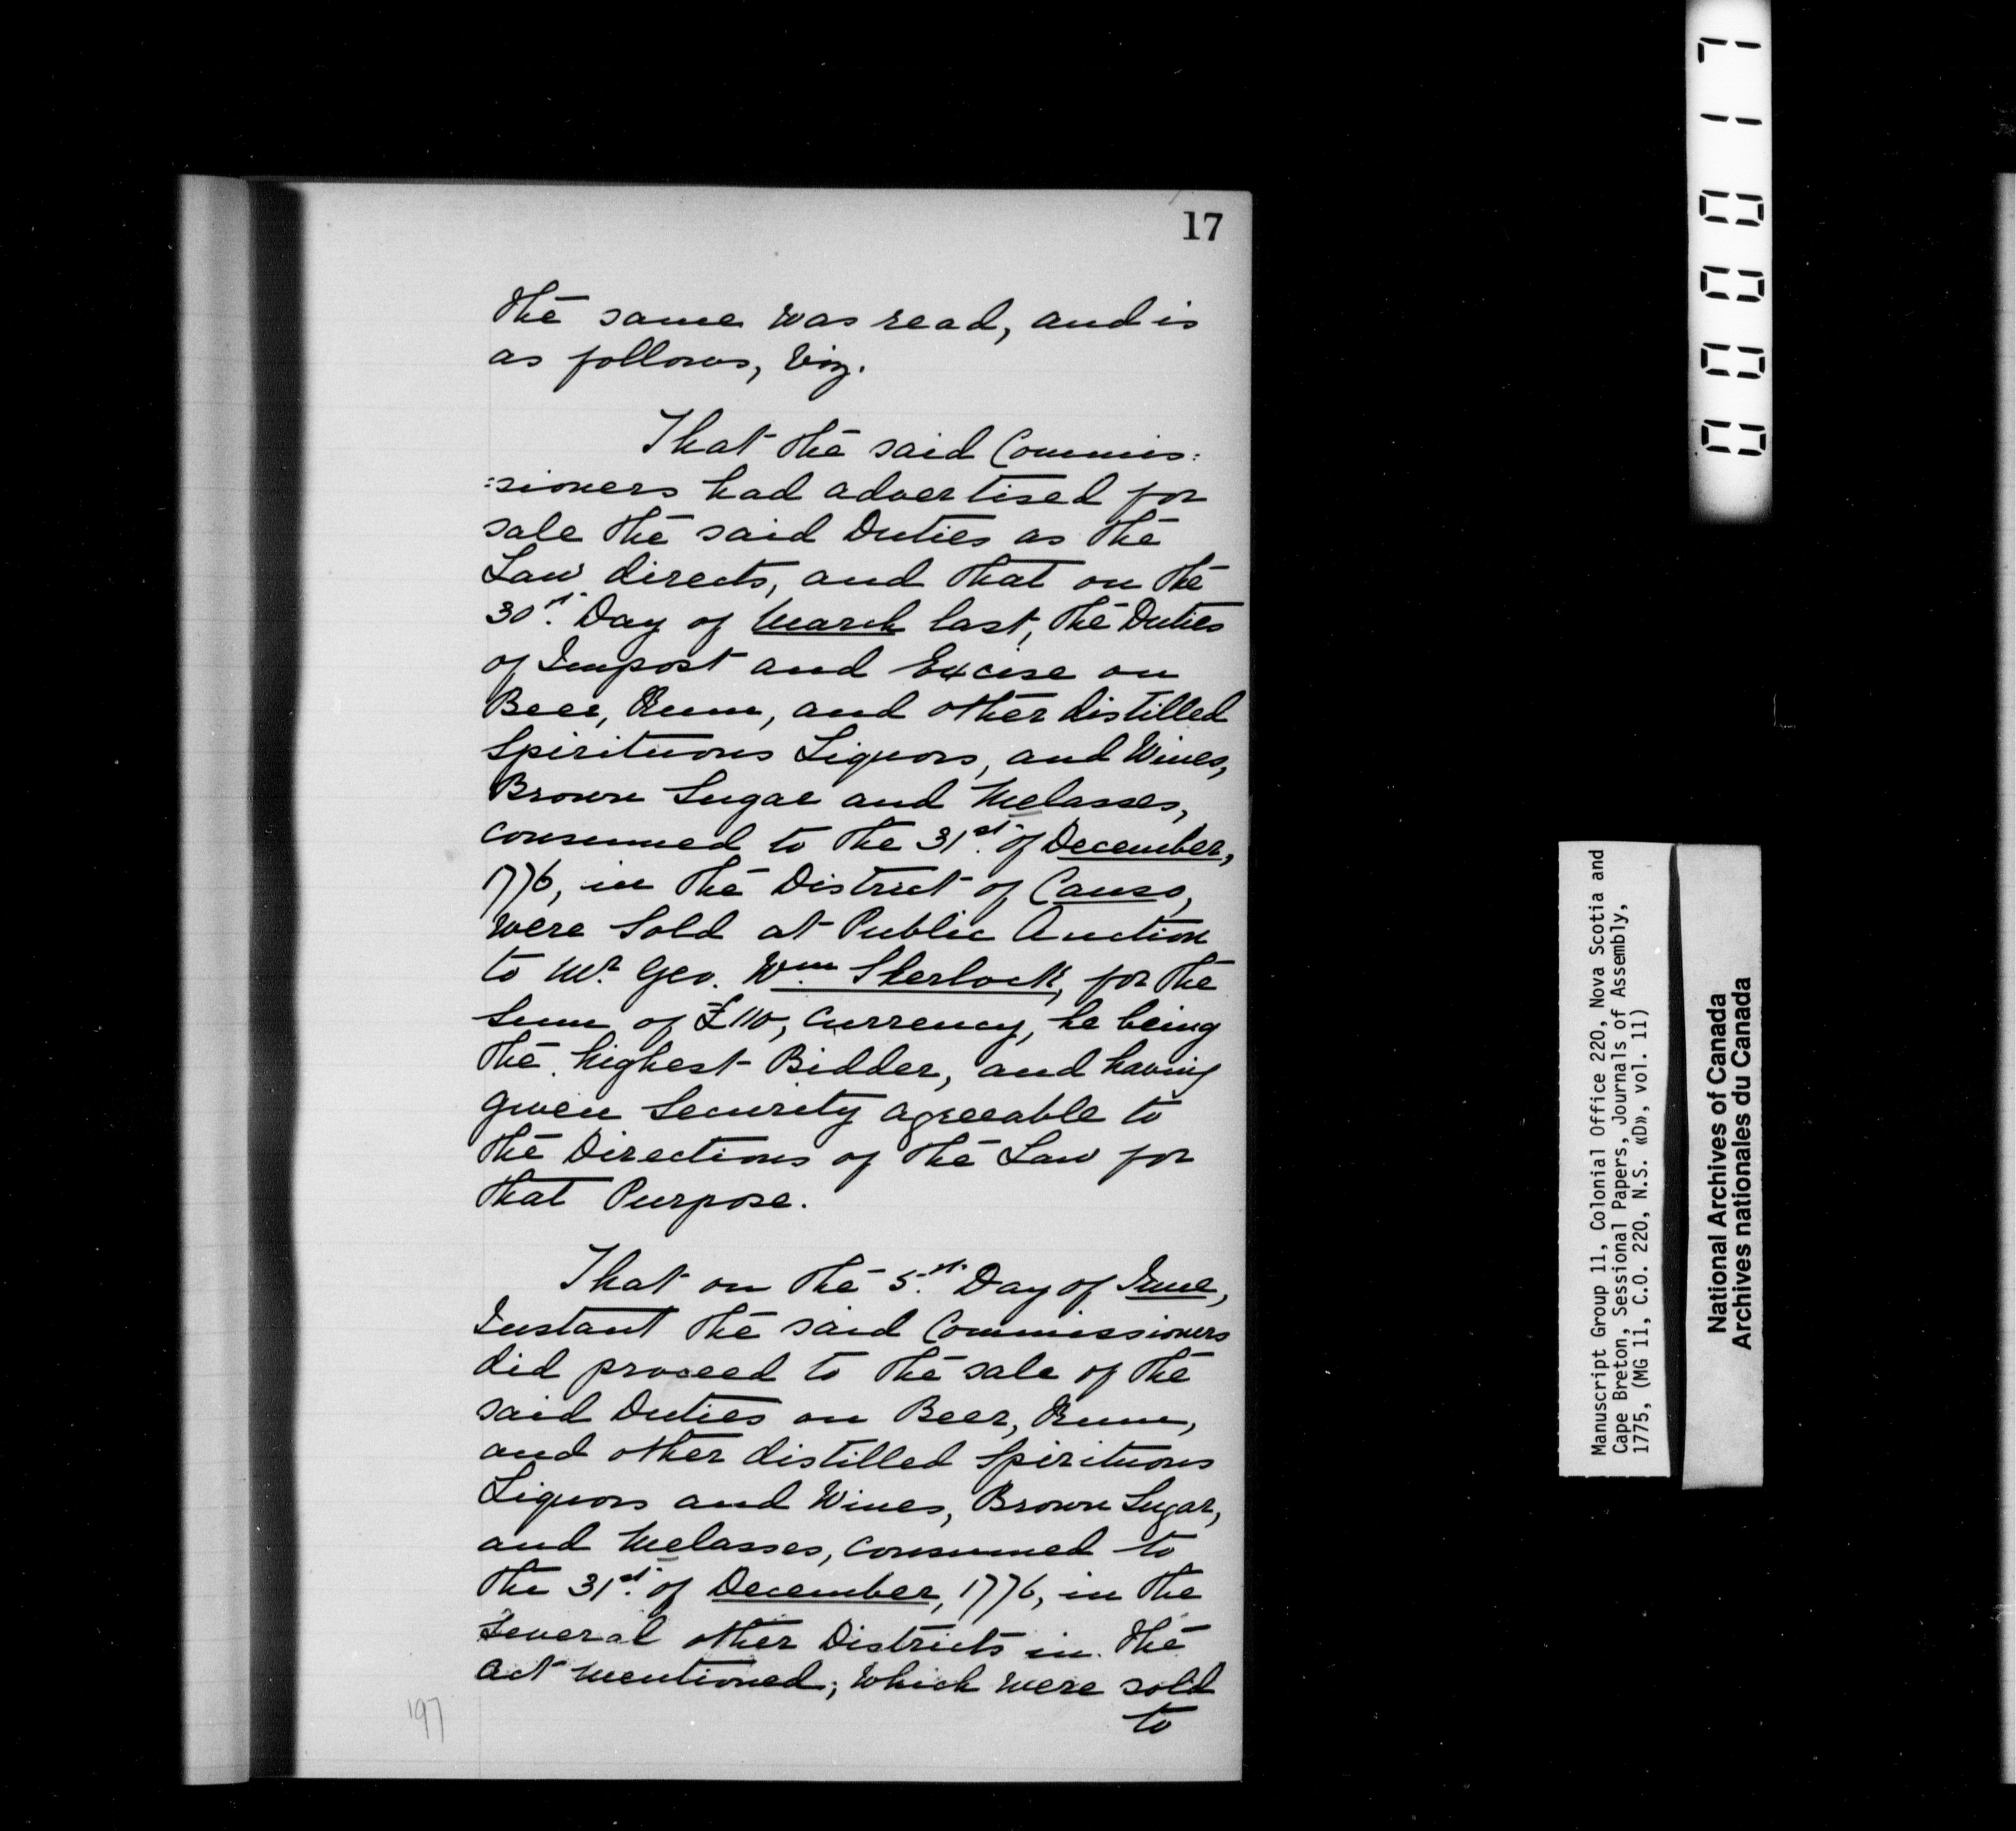 17
the same was read, and is
as follows, Viz.
That the said Commis:
:sioners had advertised for
sale the said Duties as the
Law directs, and that on the
30th. Day of March last, the Duties
of Impost and Excise on
Beer, Rum, and other distilled
Spirituous Liquors, and Wines,
Brown Sugar and Melasses,
consumed to the 31st. of December,
1776, in the District of Canso,
were Sold at Public Auction
to Mr. Geo. Wm. Sherlock, for the
Sum of £110, Currency, he being
the highest Bidder, and having
given Security agreeable to
the Directions of the Law for
that Purpose.
That on the 5th. Day of June,
Instant the said Commissioners
did proceed to the sale of the
said Duties on Beer, Rum,
and other distilled Spirituous
Liquors and Wines, Brown Sugar,
and Melasses, consumed to
the 31st. of December, 1776, in the
Several other Districts in the
Act mentioned; which were sold
to
197
000017
Manuscript Group 11, Colonial Office 220, Nova Scotia and
Cape Breton, Sessional Papers, Journals of Assembly,
1775, (MG 11, C.O. 220, N.S. «D», vol. 11)
National Archives of Canada
Archives nationales du Canada